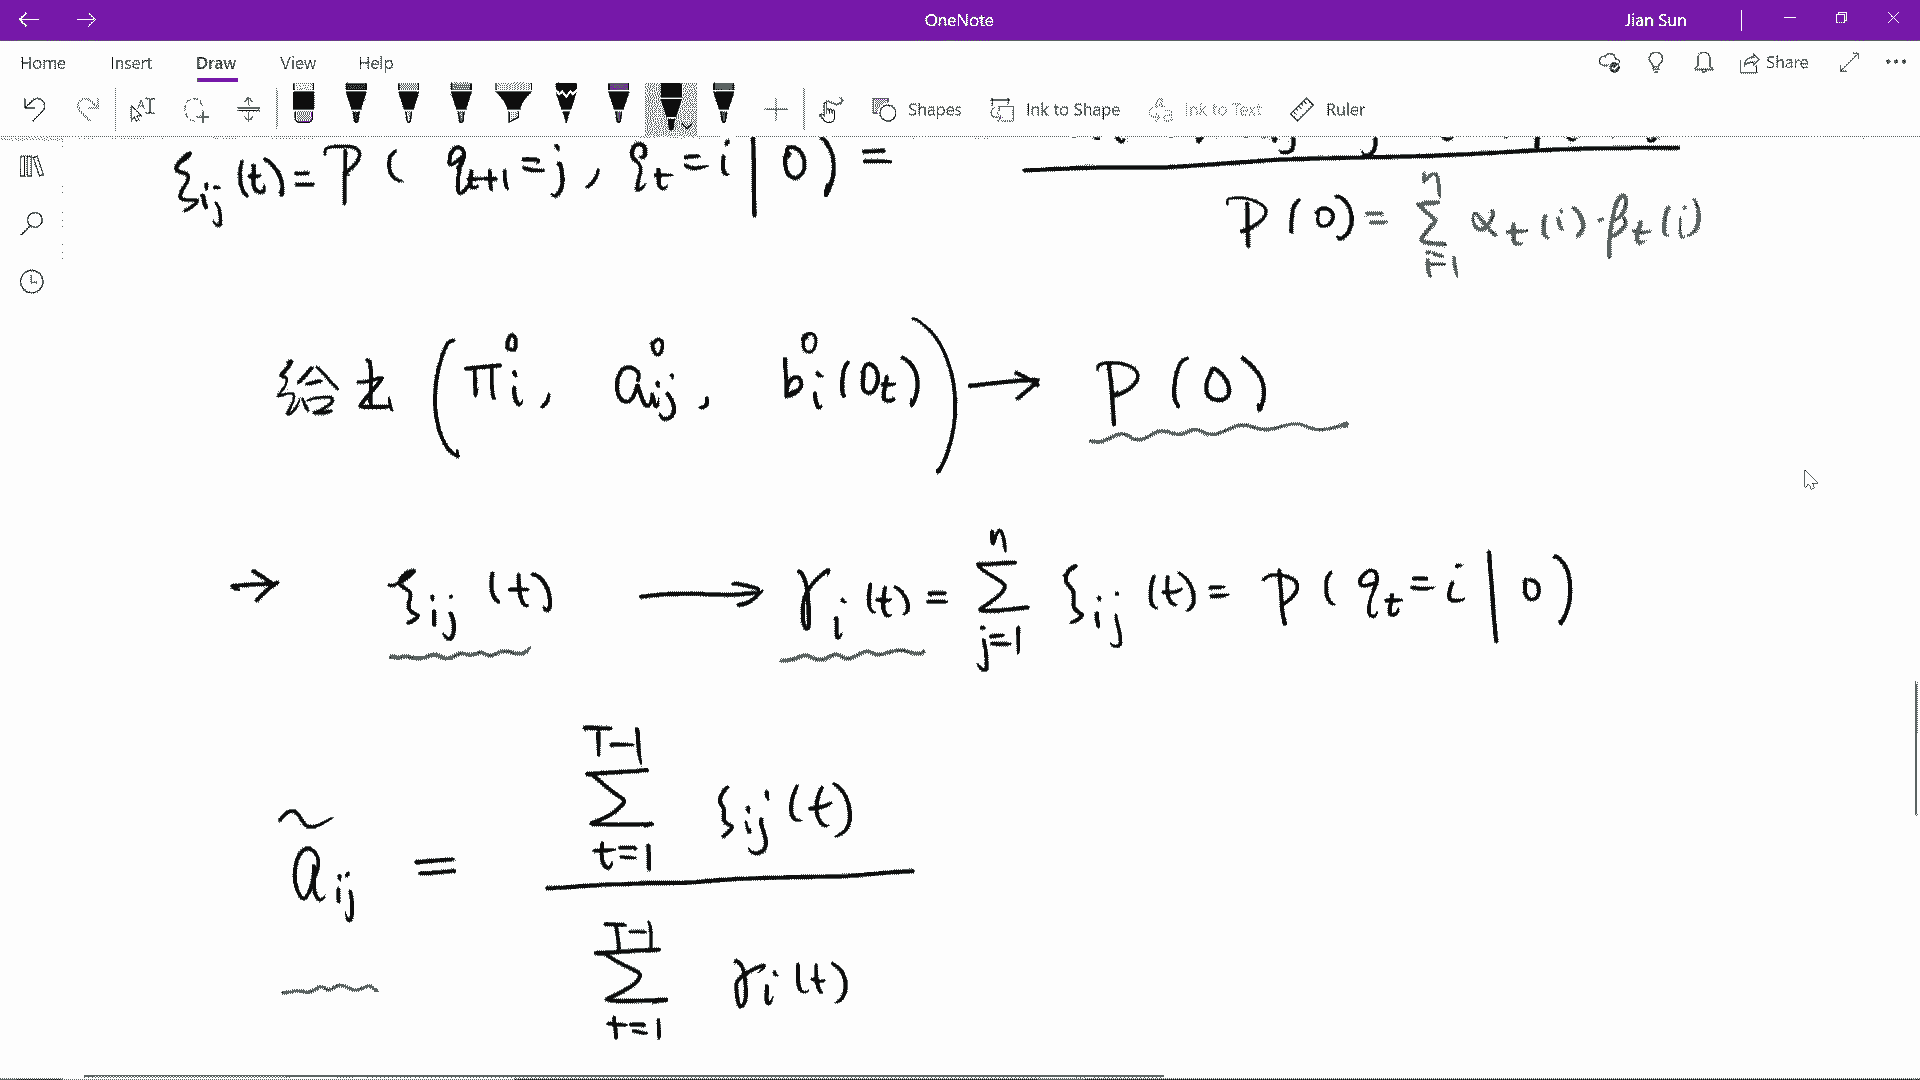 OneNote
Jian Sun
Home Insert Draw View Help Share
Shapes Ink to Shape Ink to Text Ruler
ξij(t) = P(qt+1 = j, qt = i | O) =
P(O) = ∑ni=1 αt(i)·βt(i)
给出 (πi0, aij0, bi0(Ot)) → P(O)
→ ξij(t) → γi(t) = ∑nj=1 ξij(t) = P(qt = i | O)
ãij = ∑T-1t=1 ξij(t) / ∑T-1t=1 γi(t)